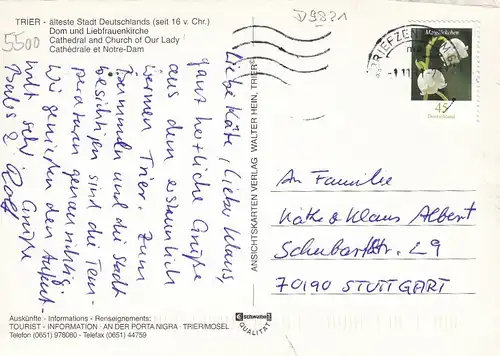 TRIER - älteste Stadt Deutschlands (seit 16 v. Chr.)
Dom und Liebfrauenkirche
Cathedral and Church of Our Lady
Cathédrale et Notre-Dam
5500
D9821
BRIEFZEN
Maiglöckchen
45
Deutschland
Liebe Käte, lieber Klaus,
ganz herzliche Grüße
aus dem erstaunlich
warmen Trier. Zum
Bummeln und die Stadt
besichtigen sind die Tem-
peraturen genau richtig.
Wir genießen den Aufent-
halt sehr. Grüße
Babs & Rolf
ANSICHTSKARTEN VERLAG WALTER HEIN, TRIER
An Familie
Käthe & Klaus Albert
Schubartstr. 29
70190 STUTTGART
Auskünfte - Informations - Renseignements:
TOURIST - INFORMATION · AN DER PORTA NIGRA · TRIER/MOSEL
Telefon (0651) 978080 - Telefax (0651) 44759
schwabe
QUALITÄT